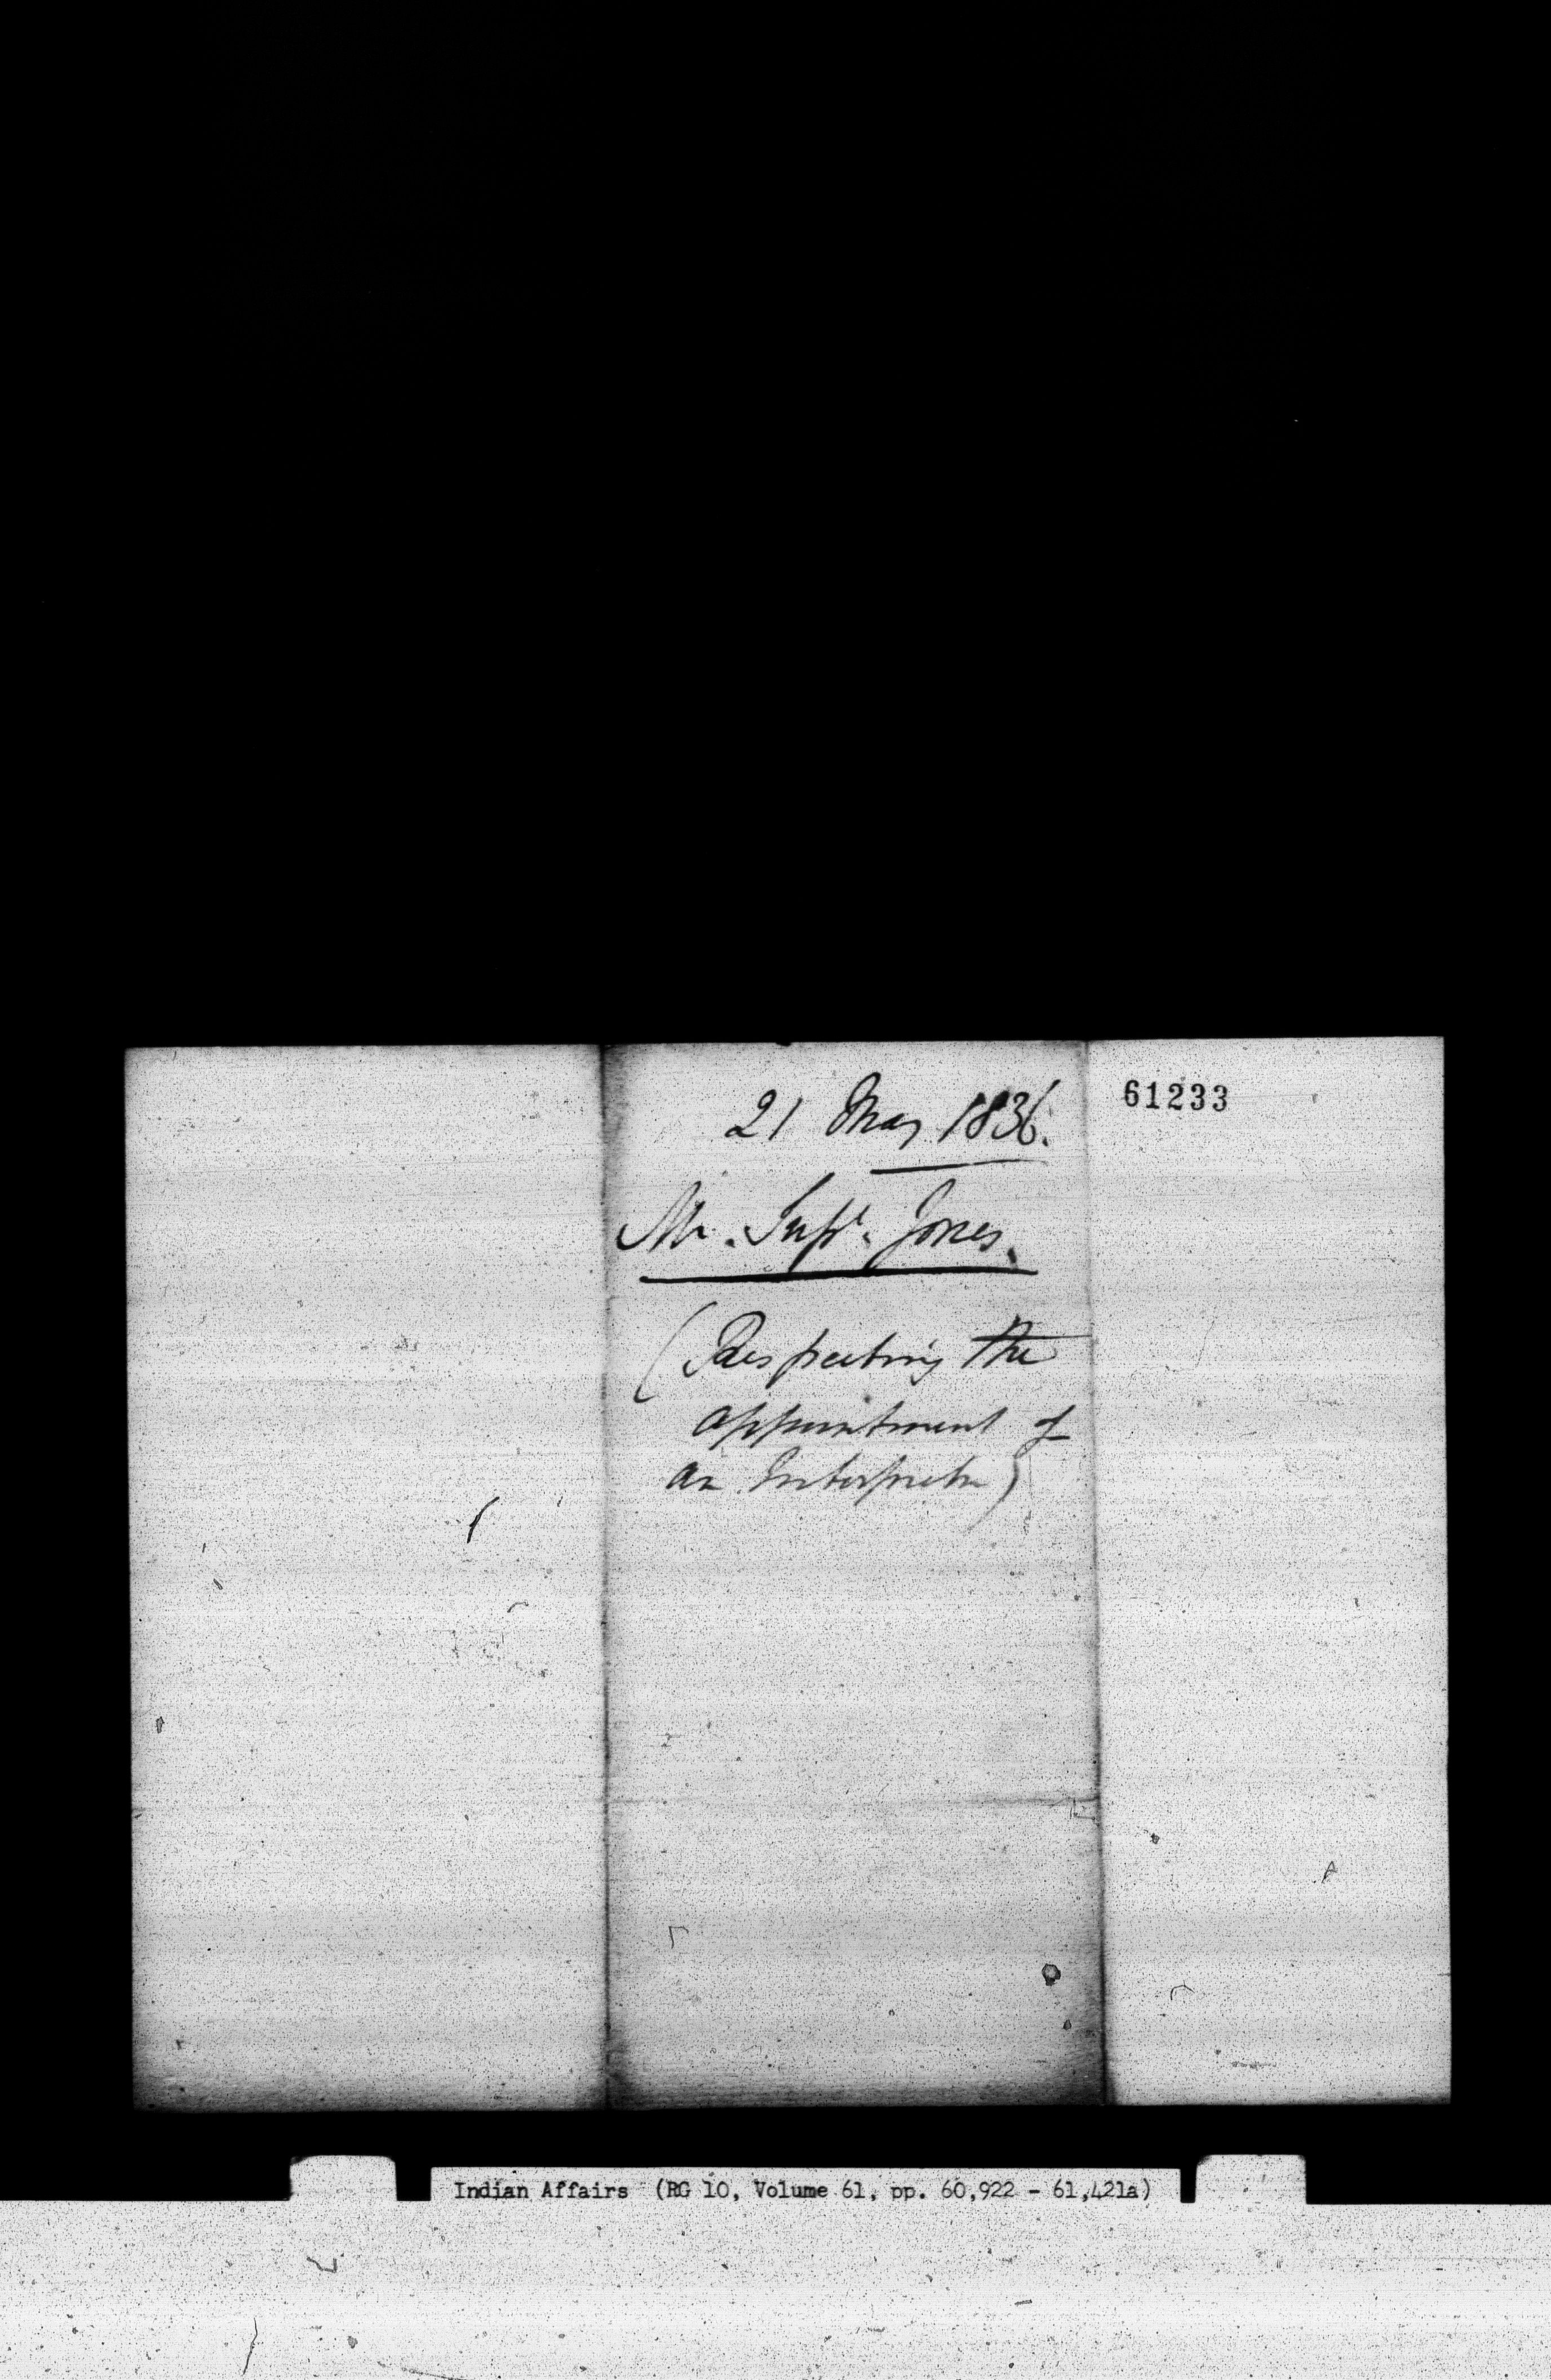 21 May 1836.
61233
Mr. Supt. Jones.
(Respecting the
appointment of
an Interpreter)
Indian Affairs (RG 10, Volume 61, pp. 60,922 - 61,421a)